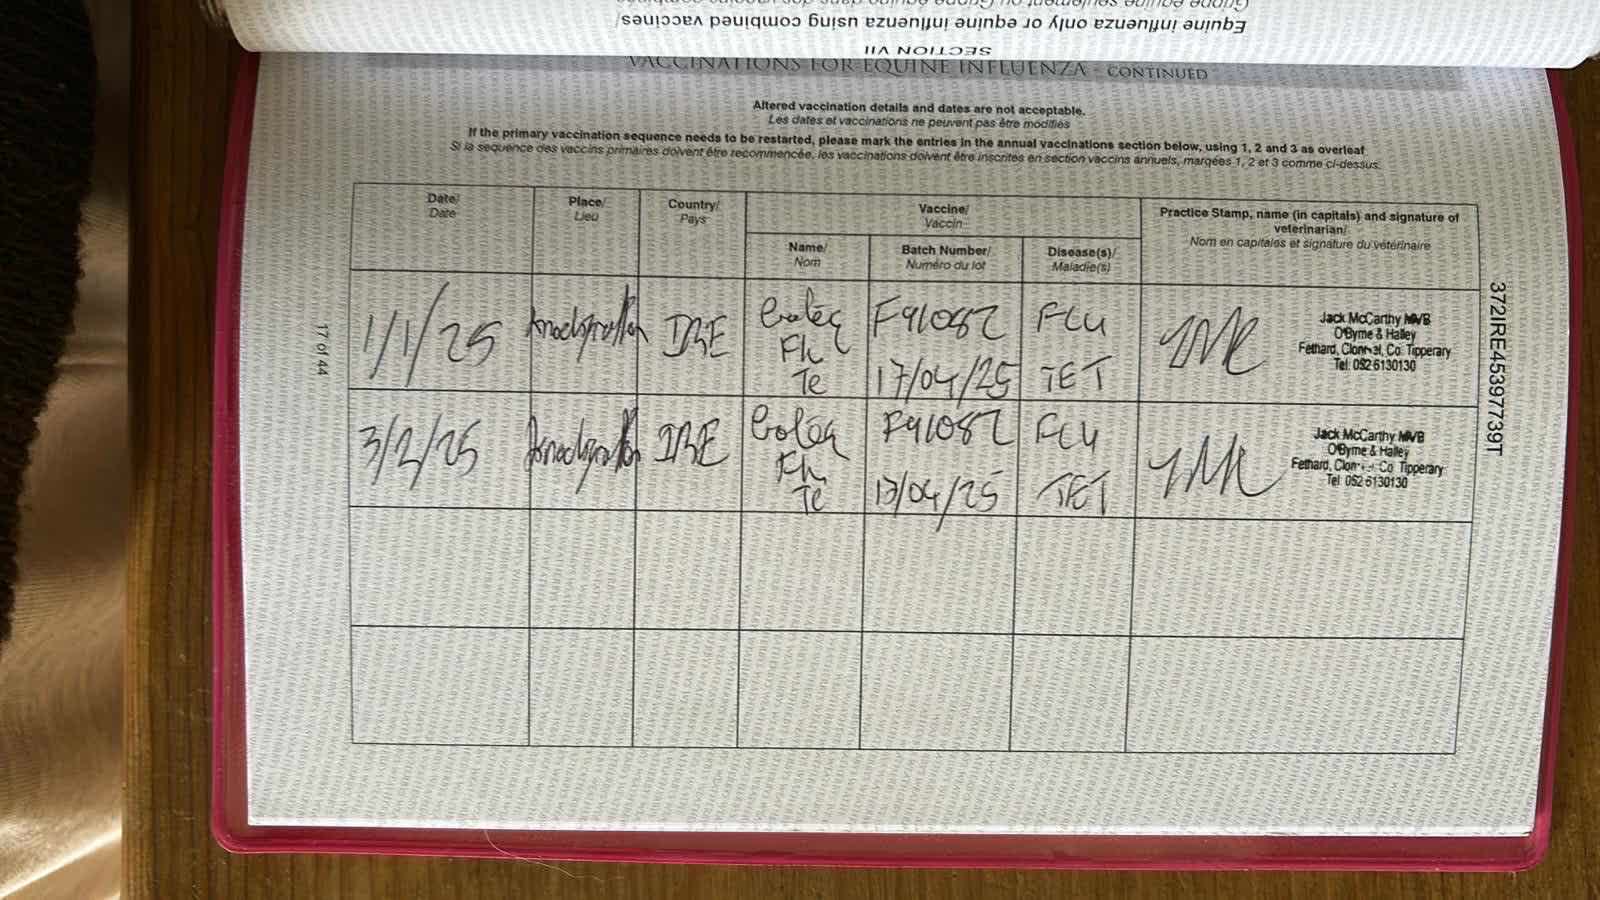 Grippe équine seulement ou Grippe équine dans des vaccins combinés
Equine influenza only or equine influenza using combined vaccines/
SECTION VII
VACCINATIONS FOR EQUINE INFLUENZA - CONTINUED
Altered vaccination details and dates are not acceptable.
Les dates et vaccinations ne peuvent pas être modifiés
If the primary vaccination sequence needs to be restarted, please mark the entries in the annual vaccinations section below, using 1, 2 and 3 as overleaf
Si la sequence des vaccins primaires doivent être recommencée, les vaccinations doivent être inscrites en section vaccins annuels, margées 1, 2 et 3 comme ci-dessus.
Date/
Date
Place/
Lieu
Country/
Pays
Vaccine/
Vaccin
Name/
Nom
Batch Number/
Numéro du lot
Disease(s)/
Maladie(s)
Practice Stamp, name (in capitals) and signature of
veterinarian/
Nom en capitales et signature du vétérinaire
1/1/25
IRE
Flu
Te
F91082
17/04/25
FLU
TET
Jack McCarthy MVB
O'Byrne & Halley
Fethard, Clonmel, Co. Tipperary
Tel: 052 6130130
3/2/25
IRE
Flu
Te
F91082
FLU
TET
Jack McCarthy MVB
O'Byrne & Halley
Fethard, Clonmel, Co. Tipperary
Tel: 052 6130130
17 of 44
372IRE45397739T